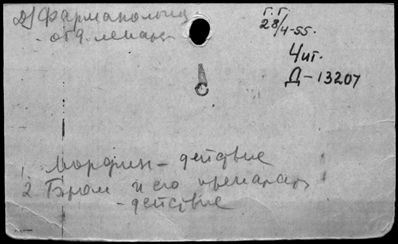 2) Фармакология
- отд. лекарс
Г. Г.
28/4-55.
Чит.
Д-13207
1. Морфин - действие
2 Бром и его препарат
- действие